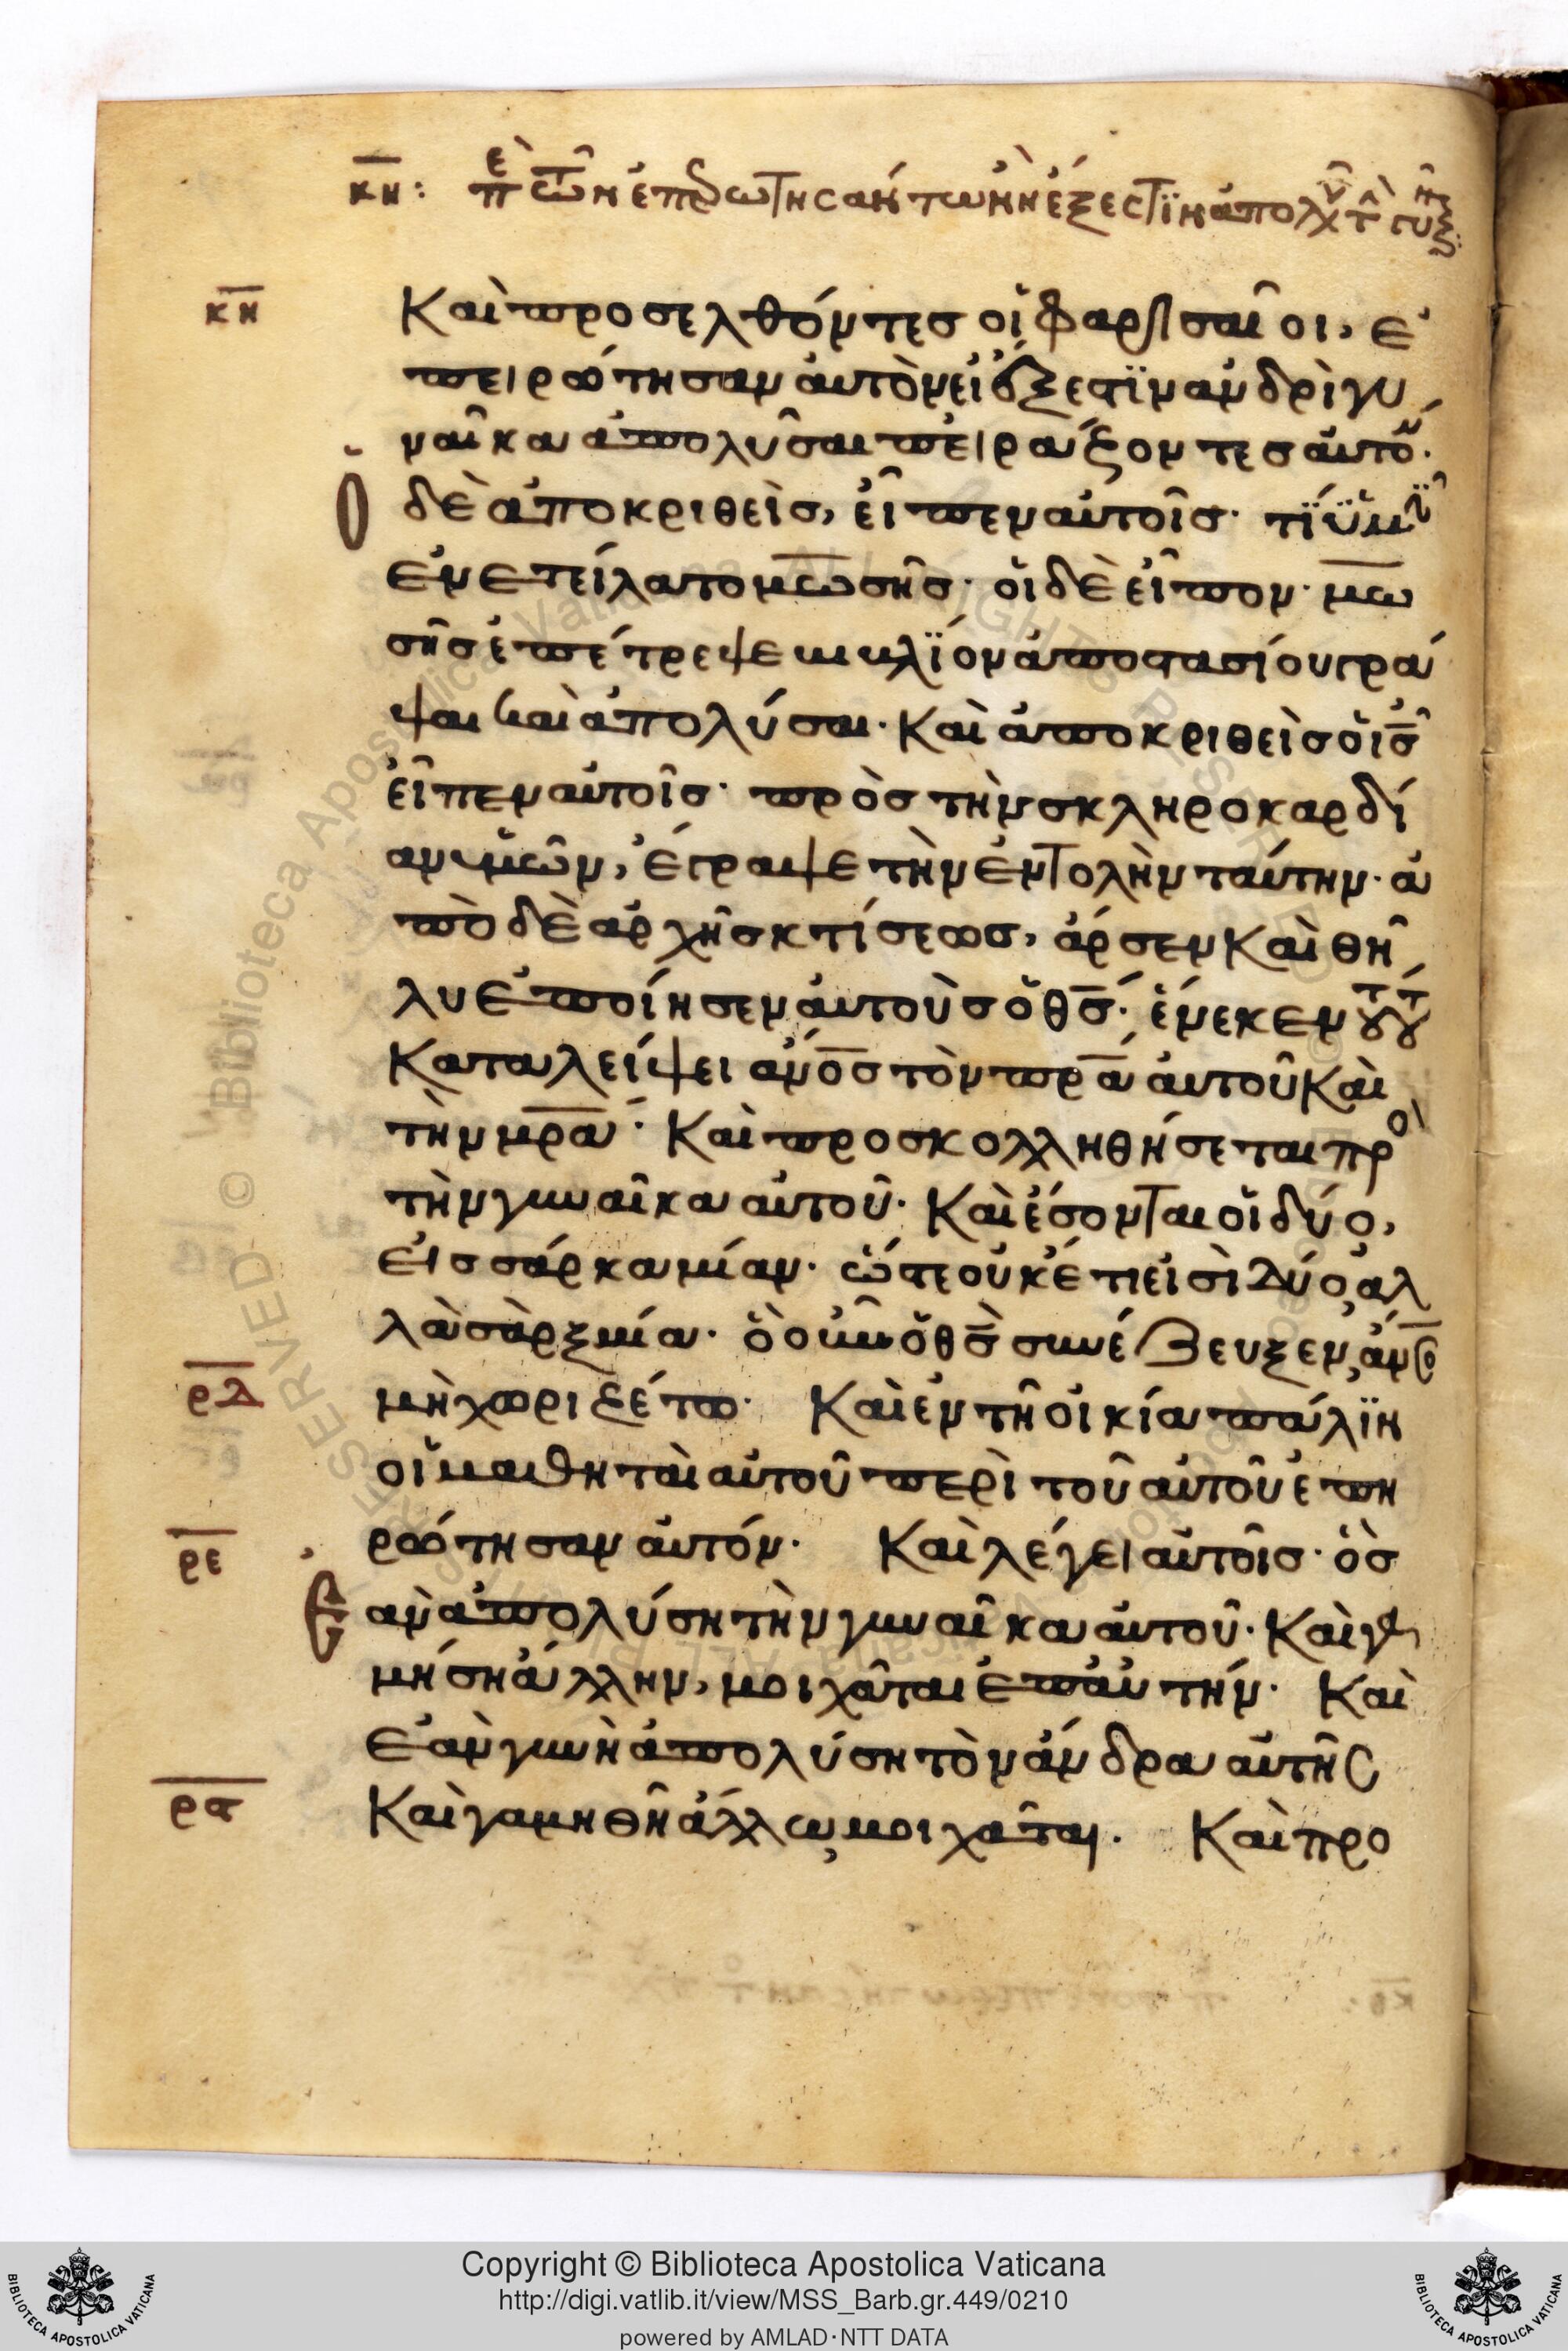 κη: πε τῶν ἐπερωτησάντων εἰ ἔξεστϊν ἀπολῦ τ γυ
κη
Καὶ προσελθόντεσ οἱ φαρισαῖοι, ἐ
πειρώτησαν αὐτὸν εἰ ἔξεστϊν ἀνδρὶ γυ
ναῖκα ἀπολῦσαι πειράζοντεσ αὐτό.
Ὁ δὲ ἀποκριθεὶσ, εἶπεν αὐτοῖσ· τί ὑμῖ
ἐνετείλατο μωσῆσ· οἱ δὲ εἶπον· μω
σῆσ ἐπέτρεψε βιβλϊον ἀποστασίου γρά
ψαι καὶ ἀπολύσαι· Καὶ ἀποκριθεὶσ ὁ ισ
εἶπεν αὐτοῖσ· πρὸσ τὴν σκληροκαρδί
αν ὑμῶν, ἔγραψε τὴν ἐντολὴν ταύτην· ἀ
πὸ δὲ ἀρχῆσ κτίσεωσ, ἄρσεν καὶ θῆ
λυ ἐποίησεν αὐτοὺσ ὁ θσ· ἕνεκεν τούτου
καταλείψει ἀνοσ τὸν πρα αὐτοῦ καὶ
τὴν μρα· Καὶ προσκολληθήσεται προ
τὴν γυναῖκα αὐτοῦ· Καὶ ἔσονται οἱ δύο,
εἰσ σάρκα μίαν· ὥστε οὐκέτι εἰσὶ δύο, ἀλ
λὰ σὰρξ μία· ὃ οὖν ὁ θσ συνέζευξεν, ἀνο
ρδ
μὴ χωριζέτω· Καὶ ἐν τῆ οἰκία πάλϊν
οἱ μαθηταὶ αὐτοῦ περὶ τοῦ αὐτοῦ ἐπη
ρε
ρώτησαν αὐτόν· Καὶ λέγει αὐτοῖσ· ὃσ
ἐὰν ἀπολύση τὴν γυναῖκα αὐτοῦ· Καὶ γα
μήση ἄλλην, μοιχᾶται ἐπ' αὐτήν· Καὶ
ἐὰν γυνὴ ἀπολύση τὸν ἄνδρα αὐτῆσ
ρϛ
Καὶ γαμηθῆ ἄλλω, μοιχᾶται. Καὶ προ
Copyright © Biblioteca Apostolica Vaticana
http://digi.vatlib.it/view/MSS_Barb.gr.449/0210
powered by AMLAD·NTT DATA
BIBLIOTECA APOSTOLICA VATICANA
BIBLIOTECA APOSTOLICA VATICANA